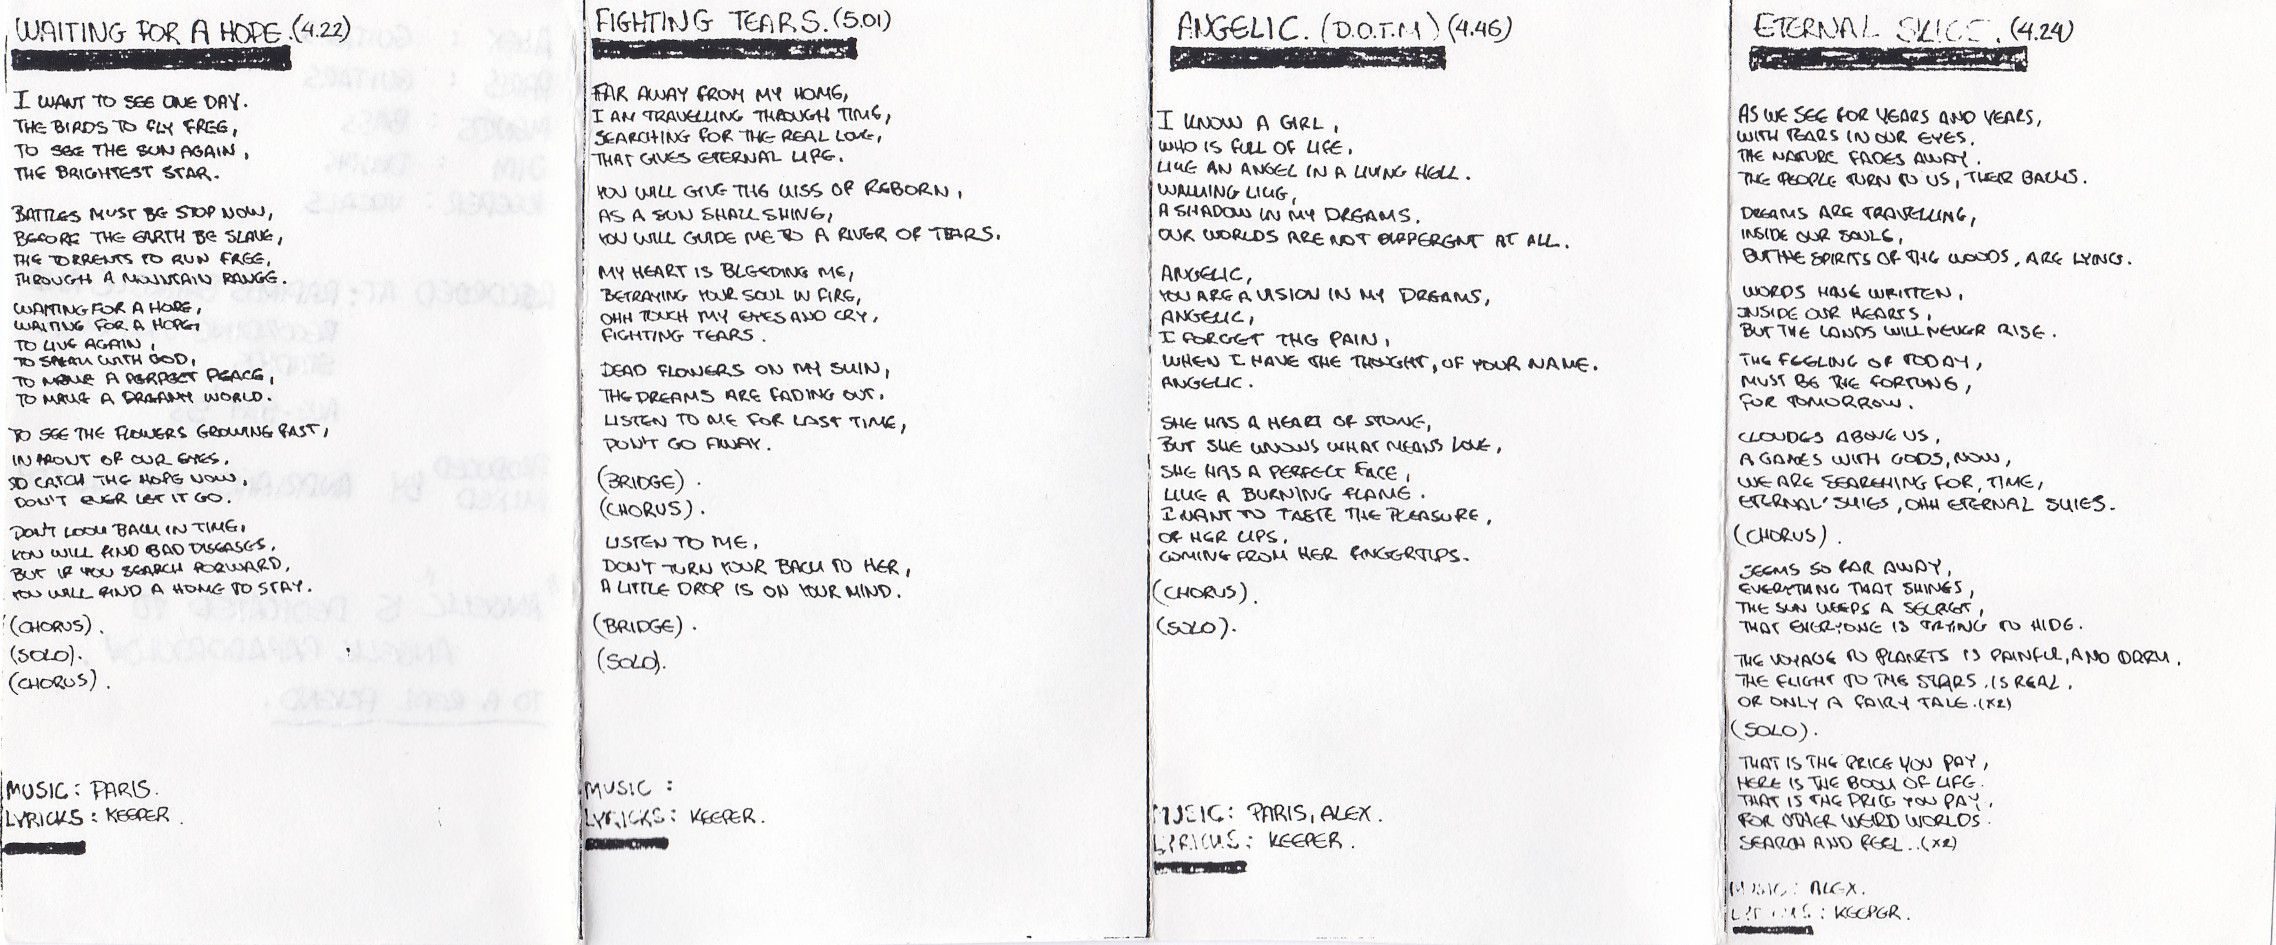 WAITING FOR A HOPE.(4.22)
I WANT TO SEE ONE DAY.
THE BIRDS TO FLY FREE,
TO SEE THE SUN AGAIN,
THE BRIGHTEST STAR.
BATTLES MUST BE STOP NOW,
BEFORE THE EARTH BE SLAVE,
THE TORRENTS TO RUN FREE,
THROUGH A MOUNTAIN RANGE.
WAITING FOR A HOPE,
WAITING FOR A HOPE,
TO LIVE AGAIN,
TO SPEAK WITH GOD,
TO MAKE A PERFECT PEACE,
TO MAKE A DREAMY WORLD.
TO SEE THE FLOWERS GROWING FAST,
IN FRONT OF OUR EYES.
SO CATCH THE HOPE NOW,
DON'T EVER LET IT GO.
DON'T LOOK BACK IN TIME,
YOU WILL FIND BAD DISEASES,
BUT IF YOU SEARCH FORWARD,
YOU WILL FIND A HOME TO STAY.
(CHORUS).
(SOLO).
(CHORUS).
MUSIC: PARIS.
LYRICKS: KEEPER.
FIGHTING TEARS.(5.01)
FAR AWAY FROM MY HOME,
I AM TRAVELLING THROUGH TIME,
SEARCHING FOR THE REAL LOVE,
THAT GIVES ETERNAL LIFE.
YOU WILL GIVE THE KISS OF REBORN,
AS A SUN SHALL SHINE,
YOU WILL GUIDE ME TO A RIVER OF TEARS.
MY HEART IS BLEEDING ME,
BETRAYING YOUR SOUL IN FIRE,
OHH TOUCH MY EYES AND CRY,
FIGHTING TEARS.
DEAD FLOWERS ON MY SKIN,
THE DREAMS ARE FADING OUT.
LISTEN TO ME FOR LAST TIME,
DON'T GO AWAY.
(BRIDGE).
(CHORUS).
LISTEN TO ME,
DON'T TURN YOUR BACK TO HER,
A LITTLE DROP IS ON YOUR MIND.
(BRIDGE).
(SOLO).
MUSIC:
LYRICKS: KEEPER.
ANGELIC. (D.O.T.M) (4.46)
I KNOW A GIRL,
WHO IS FULL OF LIFE,
LIKE AN ANGEL IN A LIVING HELL.
WALKING LIKE,
A SHADOW IN MY DREAMS.
OUR WORLDS ARE NOT DIFFERENT AT ALL.
ANGELIC,
YOU ARE A VISION IN MY DREAMS,
ANGELIC,
I FORGET THE PAIN,
WHEN I HAVE THE THOUGHT, OF YOUR NAME.
ANGELIC.
SHE HAS A HEART OF STONE,
BUT SHE KNOWS WHAT MEANS LOVE,
SHE HAS A PERFECT FACE,
LIKE A BURNING FLAME.
I WANT TO TASTE THE PLEASURE,
OF HER LIPS,
COMING FROM HER FINGERTIPS.
(CHORUS).
(SOLO).
MUSIC: PARIS, ALEX.
LYRICKS: KEEPER.
ETERNAL SKIES. (4.24)
AS WE SEE FOR YEARS AND YEARS,
WITH TEARS IN OUR EYES.
THE NATURE FADES AWAY.
THE PEOPLE TURN TO US, THEIR BACKS.
DREAMS ARE TRAVELLING,
INSIDE OUR SOULS,
BUT THE SPIRITS OF THE WOODS, ARE LYING.
WORDS HAVE WRITTEN,
INSIDE OUR HEARTS,
BUT THE LANDS WILL NEVER RISE.
THE FEELING OF TODAY,
MUST BE THE FORTUNE,
FOR TOMORROW.
CLOUDES ABOVE US,
A GAMES WITH GODS, NOW,
WE ARE SEARCHING FOR, TIME,
ETERNAL SKIES, OHH ETERNAL SKIES.
(CHORUS).
SEEMS SO FAR AWAY,
EVERYTHING THAT SHINES,
THE SUN KEEPS A SECRET,
THAT EVERYONE IS TRYING TO HIDE.
THE VOYAGE TO PLANETS IS PAINFUL, AND DARK.
THE FLIGHT TO THE STARS, IS REAL,
OR ONLY A FAIRY TALE.(X2)
(SOLO).
THAT IS THE PRICE YOU PAY,
HERE IS THE BOOK OF LIFE.
THAT IS THE PRICE YOU PAY,
FOR OTHER WEIRD WORLDS.
SEARCH AND FEEL..(X2)
MUSIC: ALEX.
LYRICKS: KEEPER.